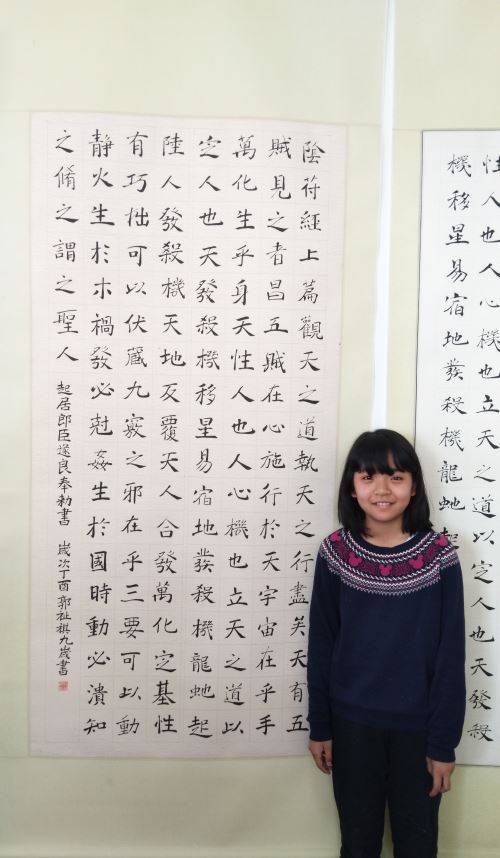 性人也人心機也立天之道以定人也天發殺
機移星易宿地發殺機龍虵起
陰苻經上篇觀天之道執天之行盡矣天有五
賊見之者昌五賊在心施行於天宇宙在乎手
萬化生乎身天性人也人心機也立天之道以
定人也天發殺機移星易宿地發殺機龍虵起
陸人發殺機天地反覆天人合發萬化定基性
有巧拙可以伏藏九竅之邪在乎三要可以動
靜火生於木禍發必尅姦生於國時動必潰知
之脩之謂之聖人 起居郎臣遂良奉勅書 歲次丁酉郭祉祺九歲書